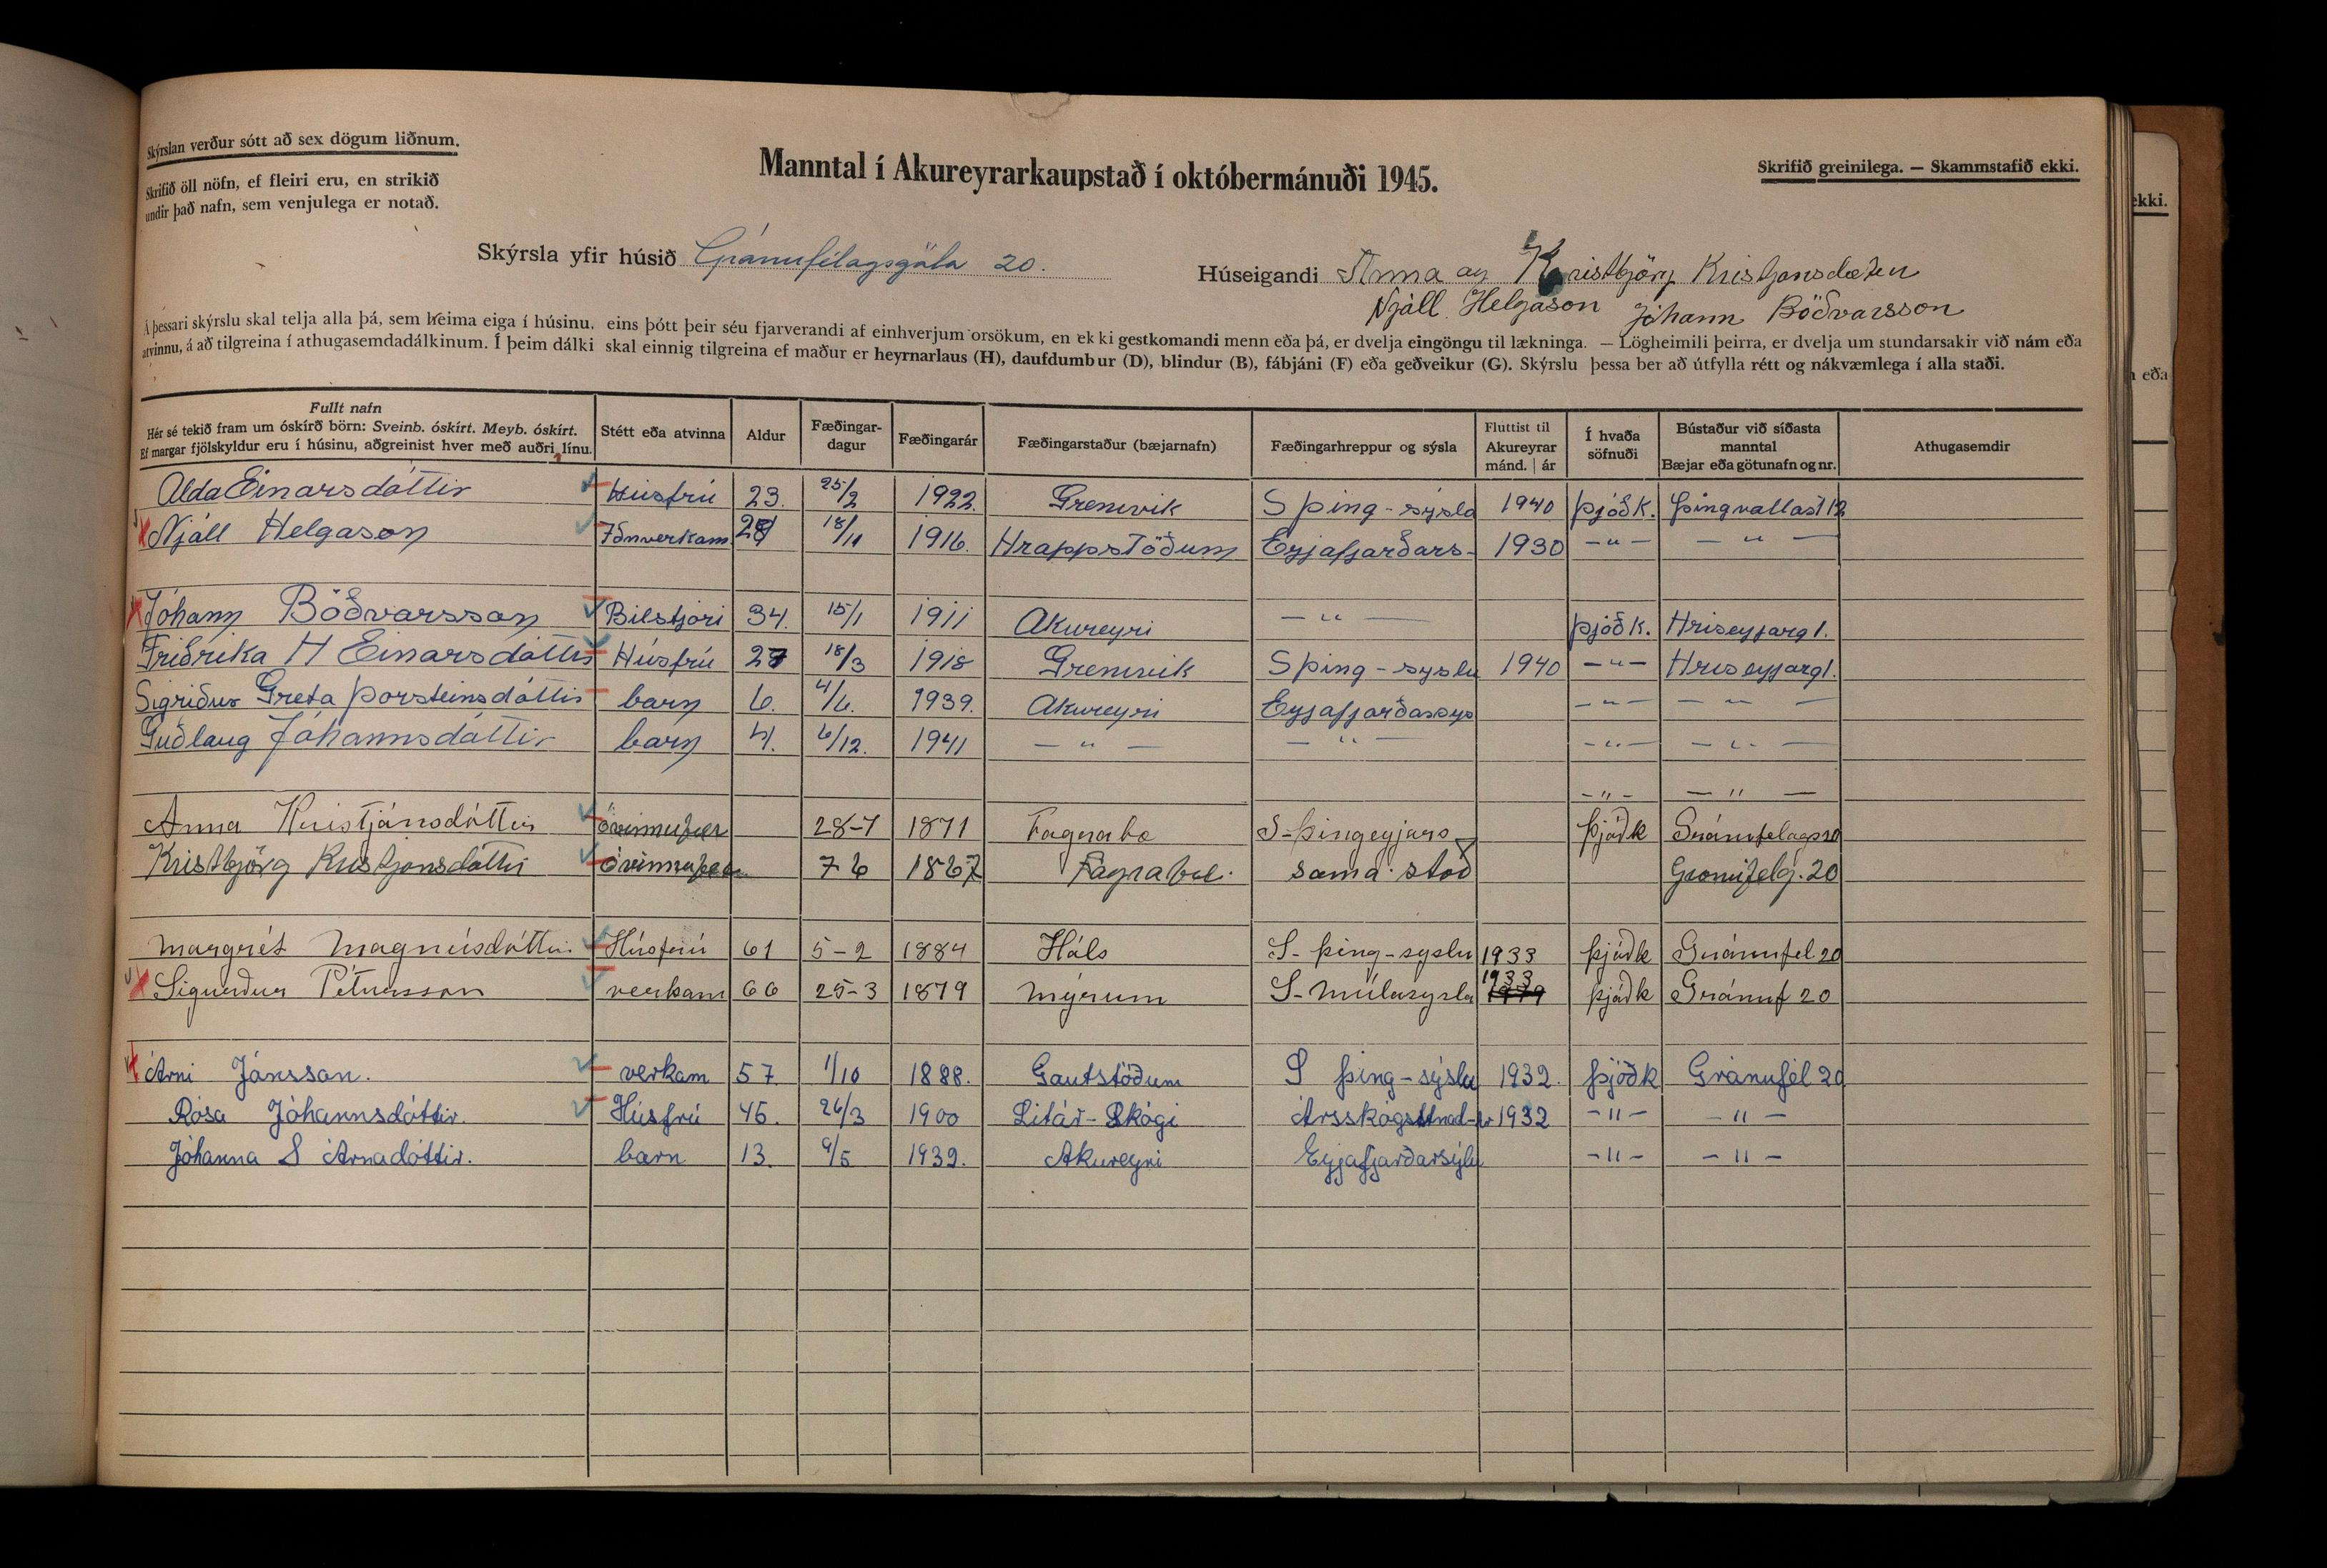 Skýrslan verður sótt að sex dögum liðnum.
Skrifið öll nöfn, ef fleiri eru, en strikið
undir það nafn, sem venjulega er notað.
Manntal í Akureyrarkaupstað í októbermánuði 1945.
Skrifið greinilega. — Skammstafið ekki.
Skýrsla yfir húsið Gránufélagsgata 20.
Húseigandi Anna og Kristbjörg Kristjansdætur
Njáll Helgason Jóhann Böðvarsson
Á þessari skýrslu skal telja alla þá, sem heima eiga í húsinu, eins þótt þeir séu fjarverandi af einhverjum orsökum, en ekki gestkomandi menn eða þá, er dvelja eingöngu til lækninga. — Lögheimili þeirra, er dvelja um stundarsakir við nám eða
atvinnu, á að tilgreina í athugasemdadálkinum. Í þeim dálki skal einnig tilgreina ef maður er heyrnarlaus (H), daufdumbur (D), blindur (B), fábjáni (F) eða geðveikur (G). Skýrslu þessa ber að útfylla rétt og nákvæmlega í alla staði.
Fullt nafn
Hér sé tekið fram um óskírð börn: Sveinb. óskírt. Meyb. óskírt.
Ef margar fjölskyldur eru í húsinu, aðgreinist hver með auðri línu.
Stétt eða atvinna
Aldur
Fæðingar-
dagur
Fæðingarár
Fæðingarstaður (bæjarnafn)
Fæðingarhreppur og sýsla
Fluttist til
Akureyrar
mánd. | ár
Í hvaða
söfnuði
Bústaður við síðasta
manntal
Bæjar eða götunafn og nr.
Athugasemdir
Alda Einarsdóttir Húsfrú 23. 25/2 1922. Grenivik S þing-sýsla 1940 þjóðk. þingvallast 12
Njáll Helgason Iðnverkam. 28 18/11 1916. Hrappstöðum Eyjafjarðars- 1930 -"- - " -
Jóhann Böðvarsson Bílstjóri 34. 15/1 1911 Akureyri - " - þjóðk. Hriseyjarg 1.
Friðrika H Einarsdóttir Húsfrú 27 18/3 1918 Grenivik S þing-syslu 1940 -"- Hriseyjarg 1.
Sigriður Greta þorsteinsdóttir barn 6. 4/6. 1939. Akureyri Eyjafjarðasys -"- - " -
Guðlaug Jóhannsdóttir barn 4. 6/12. 1941 - " - - " - -"- - " -
-"- - " -
Anna Kristjánsdóttir óvinnufær 28-7 1871 Fagrabæ S-þingeyjars þjóðk Gránufelags20
Kristbjörg Kristjansdóttir óvinnufær 7 6 1867 Fagrabæ. sama stað Granufelg. 20
Margrét Magnúsdóttir Húsfrú 61 5-2 1884 Háls S- þing-syslu 1933 þjóðk Gránufel.20
Sigurður Pétursson verkam 66 25-3 1879 Mýrum S-Múlasysla 1933 þjóðk Gránuf 20
Árni Jónsson. verkam 57. 1/10 1888. Gautstöðum S þing-sýslu 1932. þjóðk Gránufél 20
Rósa Jóhannsdóttir. Húsfrú 45. 26/3 1900 Litlár-Skógi Árskógs 1932 -"- -"-
Jóhanna S Árnadóttir. barn 13. 9/5 1932. Akureyri Eyjafjarðarsýlu -"- -"-
ekki.
eða